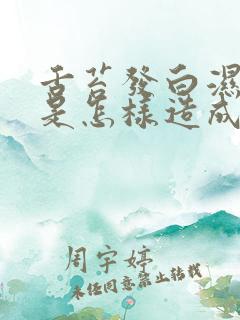 舌苔發白濕
是怎樣造成
周宇婷
未经同意禁止转载